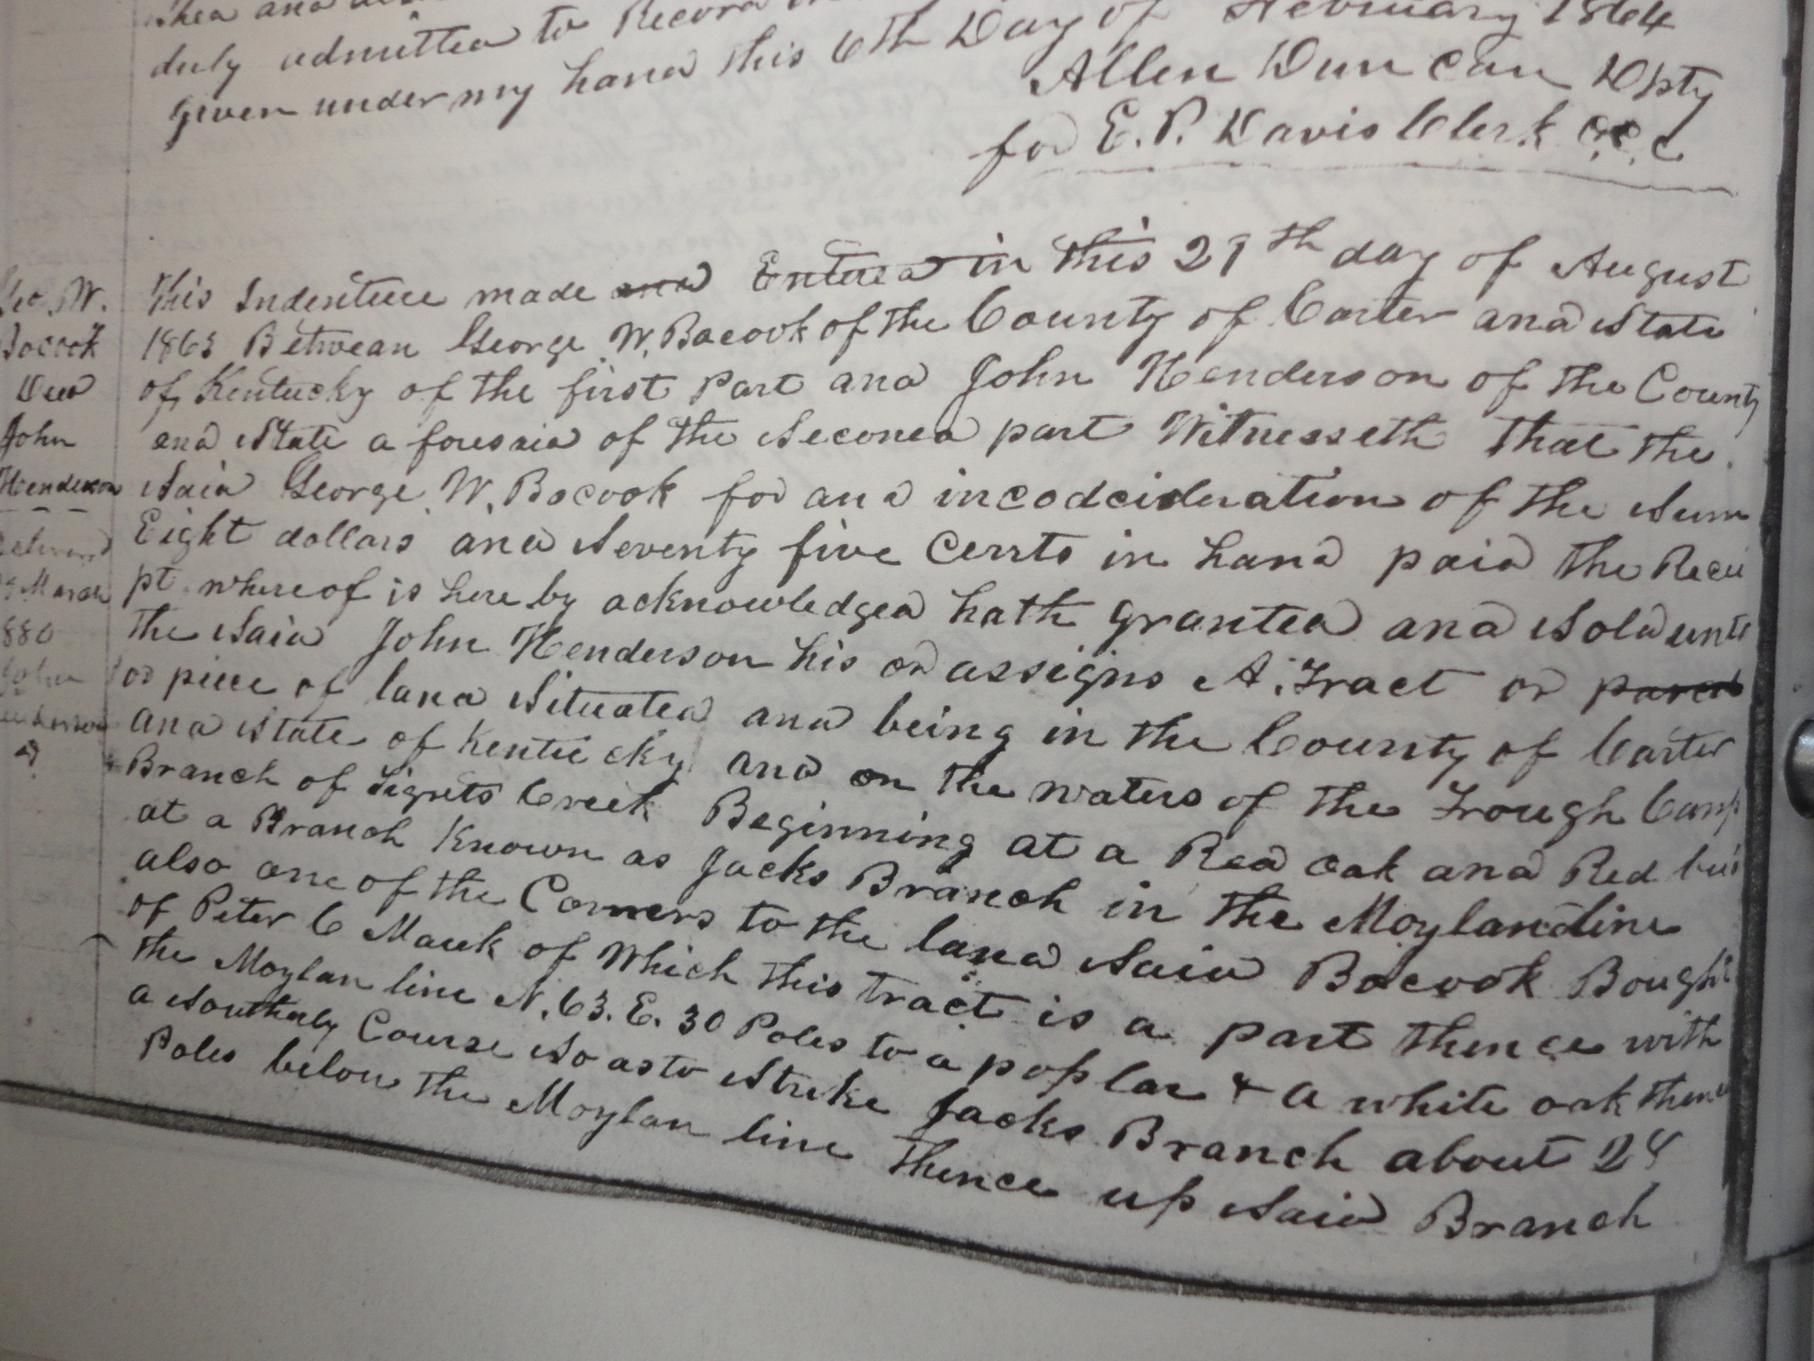 duly admitted to Record
given under my hand this 6th Day of February 1864
Allen Duncan Dpty
for E. P. Davis Clerk C.C.C
Geo. W.
Bocook
Deed
John
Henderson
March
880
John
Henderson
This Indenture made and Entered in this 29th day of August
1863 Betwean George W. Bacook of the County of Carter and State
of Kentucky of the first Part and John Henderson of the County
and State a foresaid of the Second part Witnesseth that the
Said George W. Bocook for and incodcideration of the Sum
Eight dollars and Seventy five Cents in hand paid the Recei
pt whereof is here by acknowledged hath granted and Sold unto
the Said John Henderson his or assigns A. Tract or parcel
or piece of land Situated and being in the County of Carter
and State of Kentucky and on the waters of the Trough Camp
Branch of Tigrets Creek Beginning at a Red oak and Red bud
at a Branch Known as Jacks Branch in the Moylandline
also one of the Corners to the land Said Bocook Bought
of Peter C Mauk of Which this tract is a part thence with
the Moylan line N. 63. E. 30 Poles to a poplar & a white oak thence
a Southerly Course So as to Strike Jacks Branch about 28
Poles below the Moylan line thence up Said Branch